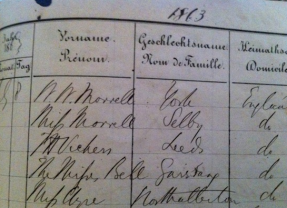 1863
Vorname. Geschlechtsname Heimaths
Prénom. Nom de Famille. Domicile
W. W. Morrell York England
Miss Morrell Selby do
Vickers Leeds do
The Misses Bell do
Miss Ayre Northallerton do